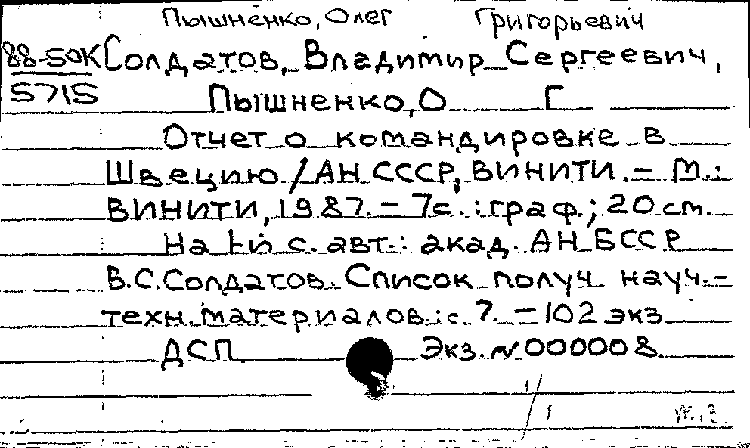 Пышненко, Олег Григорьевич
88-50К Солдатов, Владимир Сергеевич,
5715 Пышненко, О Г
Отчет о командировке в
Швецию / АН СССР, ВИНИТИ. – М.:
ВИНИТИ, 1987. – 7с. : граф.; 20 см.
На 1-й с. авт.: акад. АН БССР
В.С.Солдатов. Список получ. науч.-
техн. материалов: с. 7. – 102 экз.
ДСП Экз. № 000008